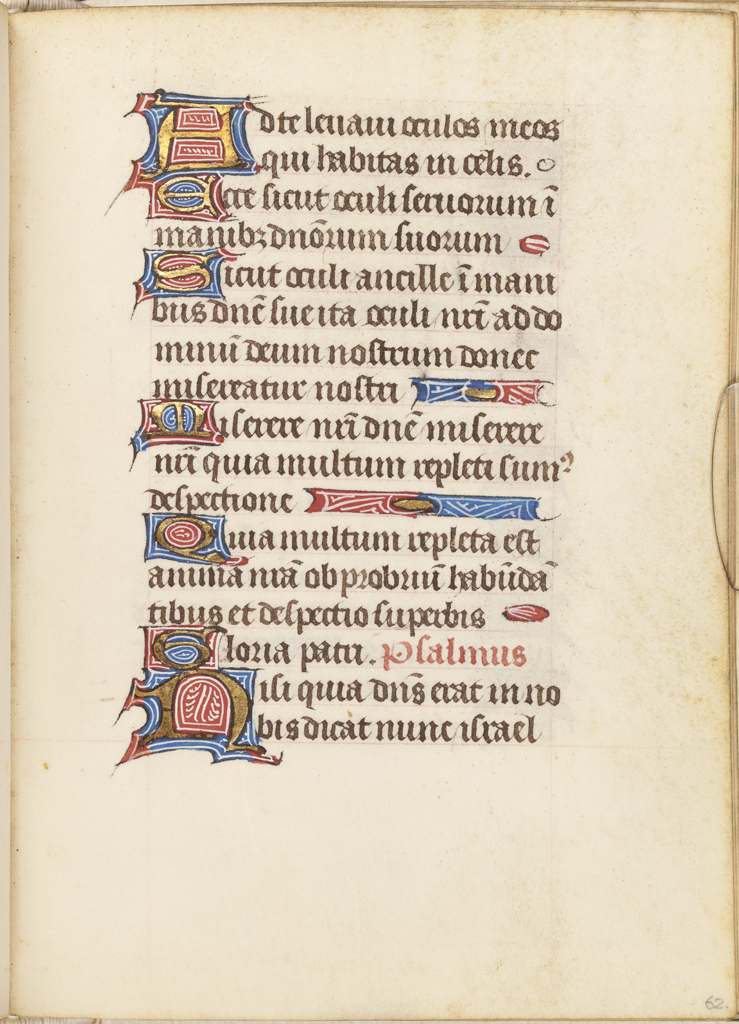 Ad te leuaui oculos meos
qui habitas in celis.
Ecce sicut oculi seruorum ī
manibꝫ dnōrum suorum
Sicut oculi ancille ī mani
bus dnē sue ita oculi nrī ad do
minū deum nostrum donec
misereatur nostri
Miserere nrī dnē miserere
nrī quia multum repleti sumꝰ
despectione
Quia multum repleta est
anima nrā obprobriū habūdā
tibus et despectio superbis
Gloria patri. Psalmus
Nisi quia dn̄s erat in no
bis dicat nunc israel
62.